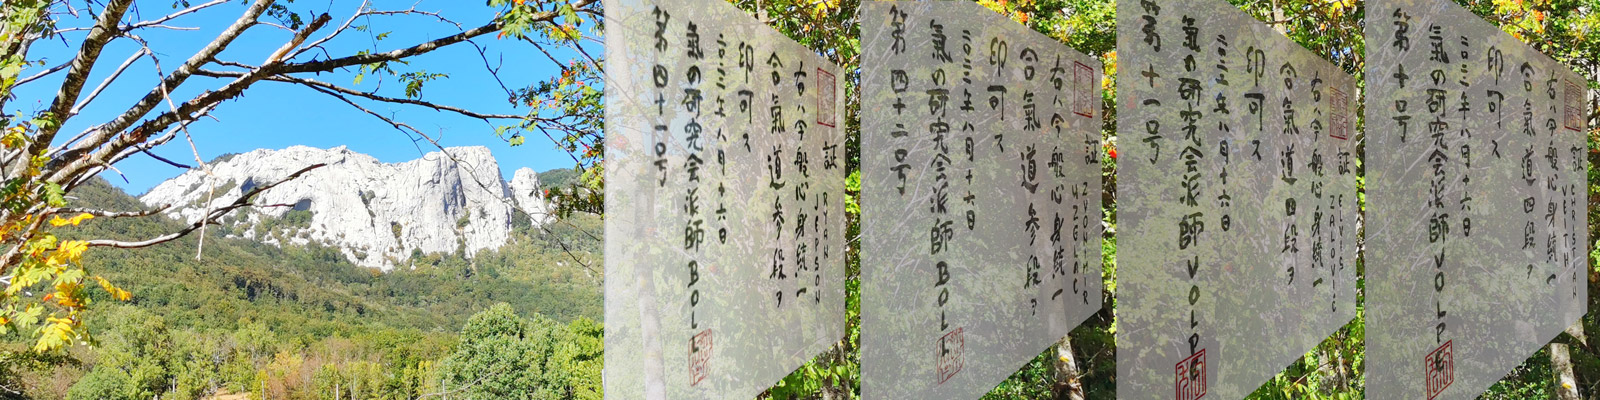 証 RYAN JEPSON
右ハ今般心身統一
合氣道参段ヲ
印可ス
二〇二三年八月十六日
氣の研究会派師 BOLL
第四十一号
証 ZVONIMIR UZELAC
右ハ今般心身統一
合氣道参段ヲ
印可ス
二〇二三年八月十六日
氣の研究会派師 BOLL
第四十二号
証 ELVIS ZAROVIC
右ハ今般心身統一
合氣道四段ヲ
印可ス
二〇二三年八月十六日
氣の研究会派師 VOLPE
第十一号
証 CHRISTIAN VEITH
右ハ今般心身統一
合氣道四段ヲ
印可ス
二〇二三年八月十六日
氣の研究会派師 VOLPE
第十号